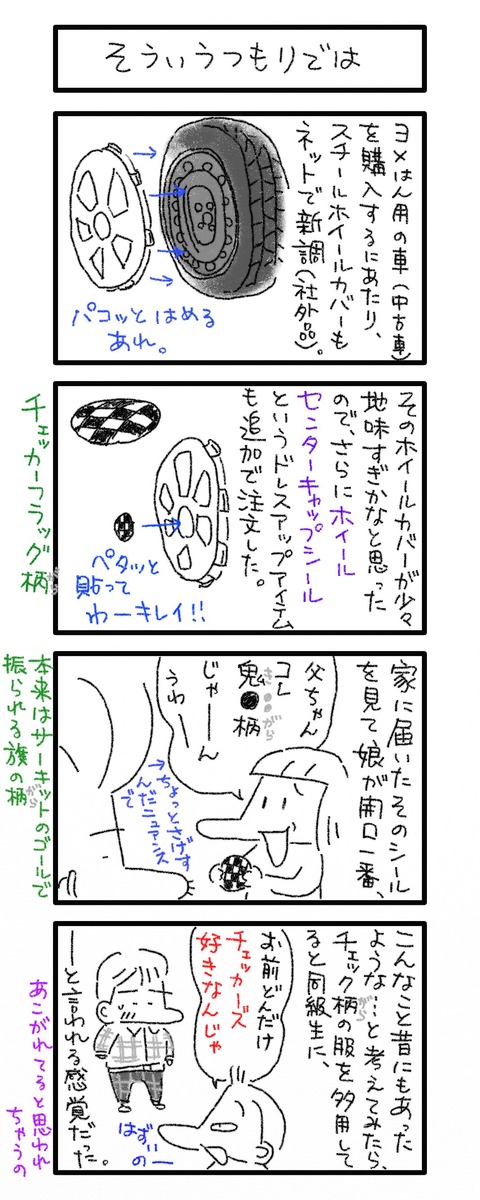 そういうつもりでは
ヨメはん用の車(中古車)
を購入するにあたり、
スチールホイールカバーも
ネットで新調(社外品)。
パコッとはめる
あれ。
そのホイールカバーが少々
地味すぎかなと思った
ので、さらにホイール
センターキャップシール
というドレスアップアイテム
も追加で注文した。
ペタッと
貼って
わーキレイ!!
チェッカーフラッグ柄
がら
家に届いたそのシール
を見て娘が開口一番、
父ちゃん
コレ
鬼●柄
き●●がら
じゃーーん
うわー
→ちょっとさげす
んだニュアンス
で
本来はサーキットのゴールで
振られる旗の柄
がら
こんなこと昔にもあった
ような…と考えてみたら、
チェック柄の服を多用して
がら
ると同級生に、
お前どんだけ
チェッカーズ
好きなんじゃ
ーと言われる感覚だった。
はずいのー
あこがれてると思われ
ちゃうの